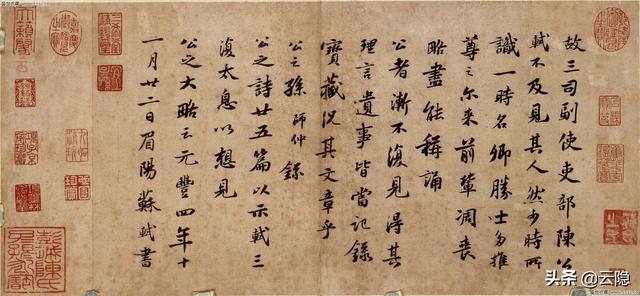 故三司副使吏部陳公
軾不及見其人然少時所
識一時名卿勝士多推
尊之尔来前輩凋喪
略盡能稱誦
公者漸不復見得其
理言遺事皆當記錄
寶藏況其文章乎
公之孫師仲錄
公之詩廿五篇以示軾三
復太息以想見
公之大略云元豐四年十
一月廿二日眉陽蘇軾書
头条 @云隐